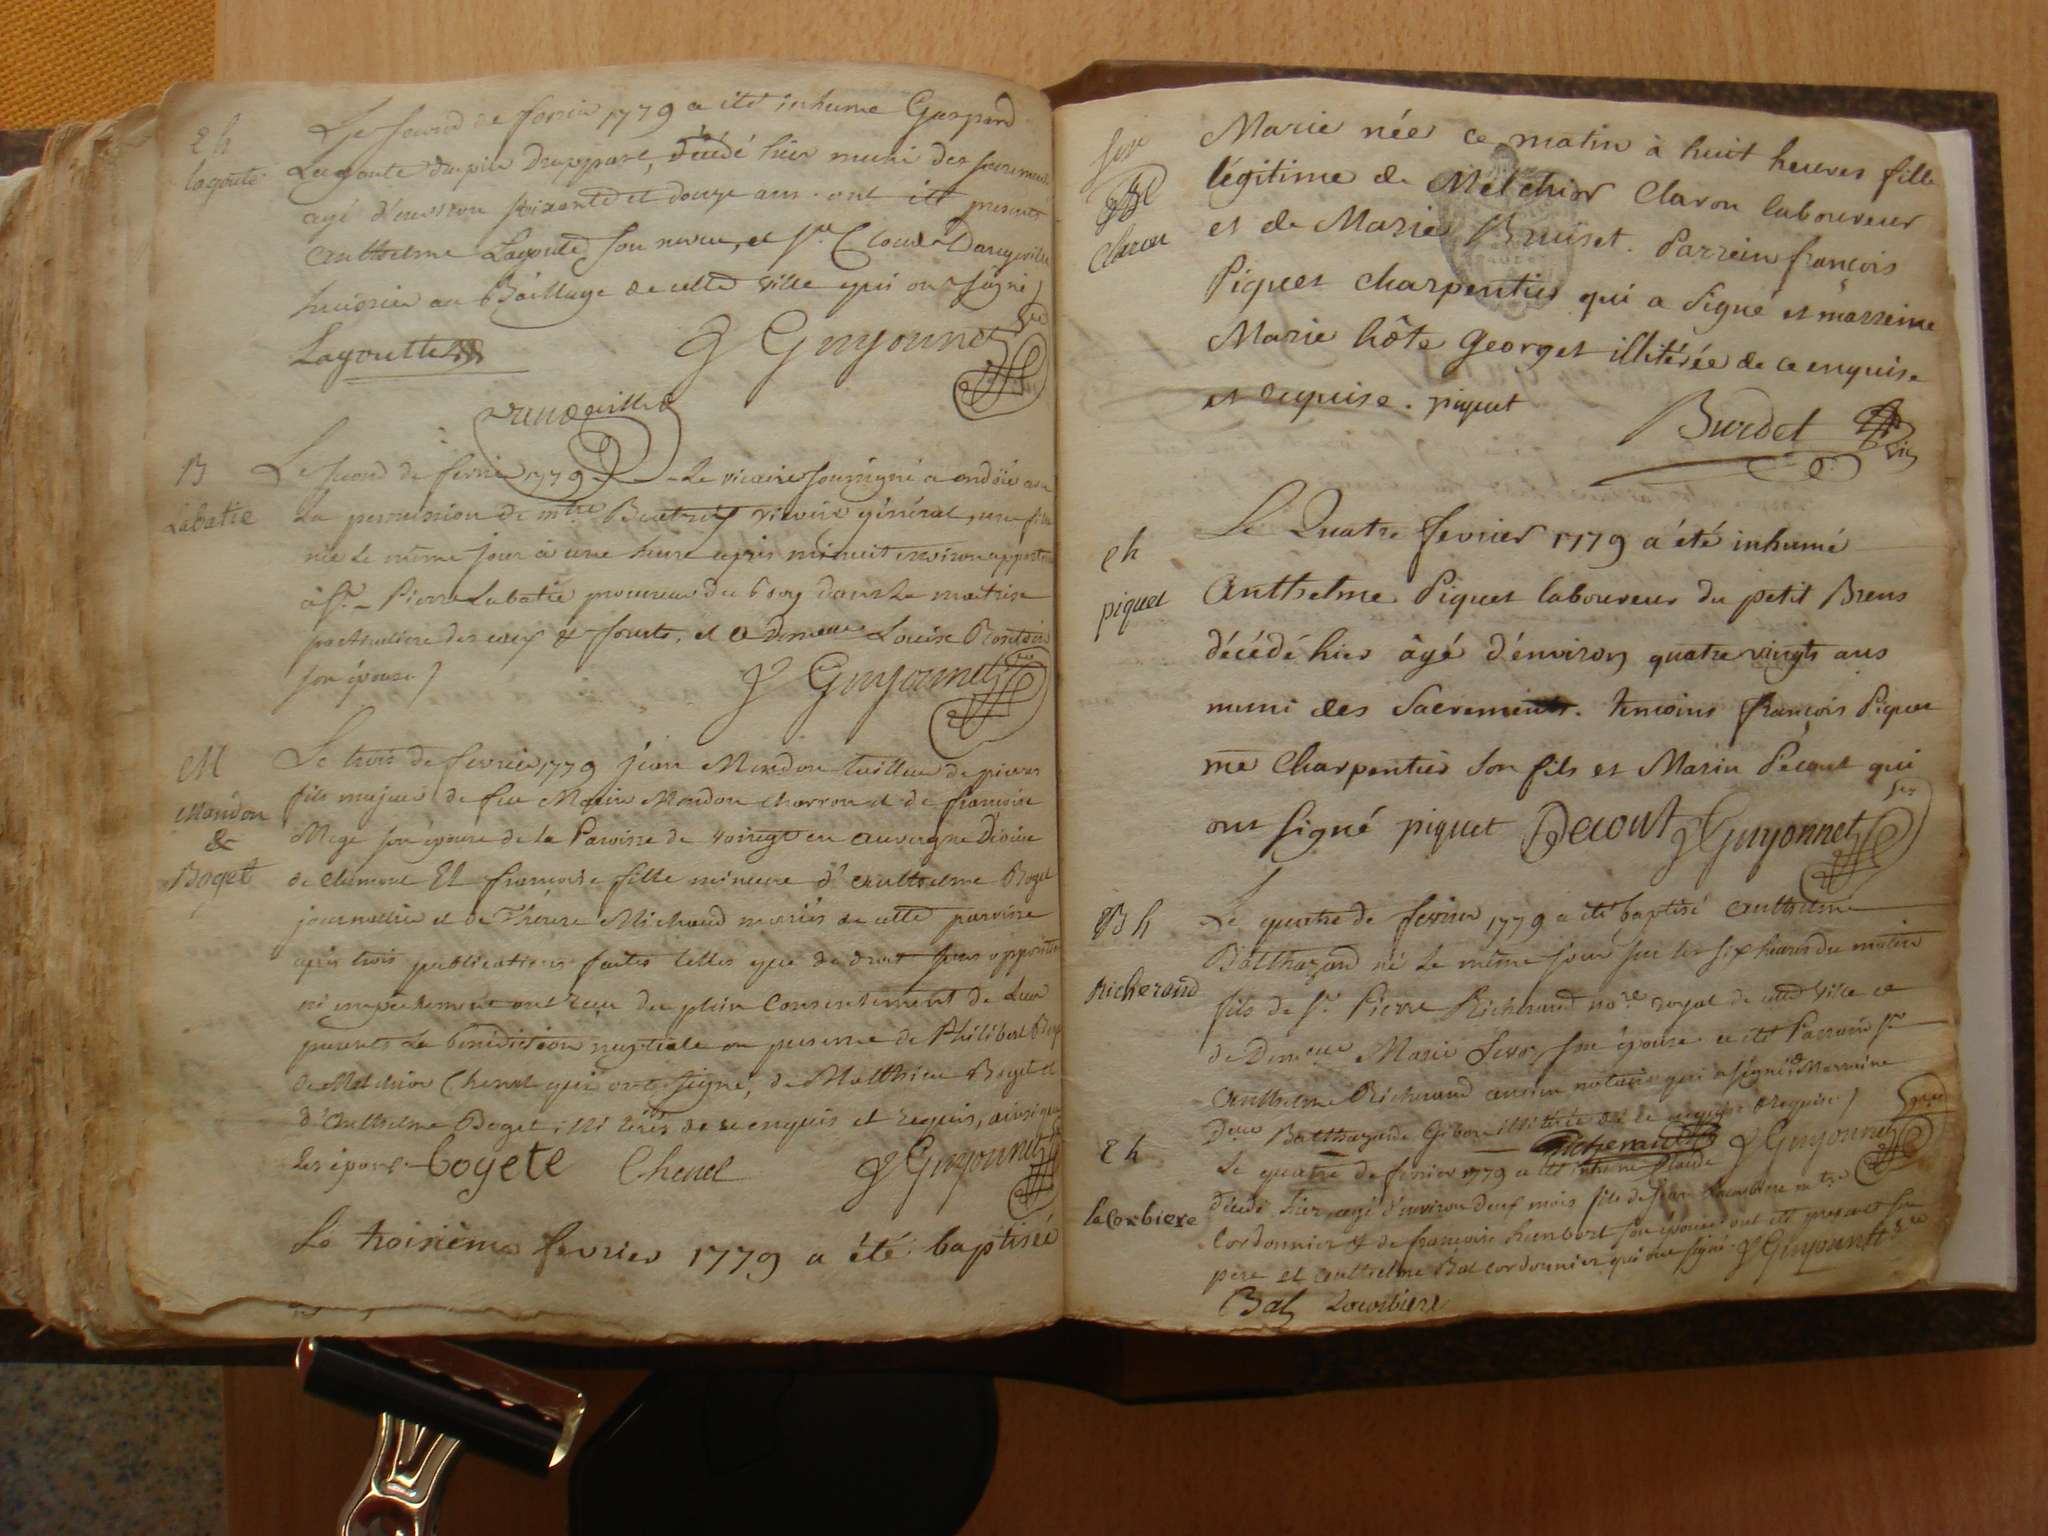 Eh
Lagoute
Le second de fevrier 1779 a été inhumé Gaspard
Lagoute drapier, décédé hier muni des sacremens
agé d'environ soixante et douze ans. ont été presents
Anthelme Lagoute son neveu, et Sr. Claude
huissier au Bailliage de cette ville qui ont signé
Lagoutte
J Guyonnet
B
Labatie
Le second de fevrier 1779 Le vicaire soussigné a ondoié avec
la permission de vicaire général, une fille
née le même jour à une heure après minuit environ
à Sr. Pierre Labatie procureur du Roy dans la maitrise
particuliere des eaux & forets, et a Louise
son épouse
J Guyonnet
M
Mondon
&
Boget
Le trois de fevrier 1779 jean Mondon tailleur de pierres
fils majeur de feu Marin Mondon charron et de françoise
Mege son épouse de la Paroisse de en auvergne Diocèse
de clermont Et françoise fille mineure d'Anthelme Boget
journalier et de Thérèse Michaud mariés de cette paroisse
après trois publications faites telles que de droit sans opposition
ni empêchement ont reçu du plein consentement de leurs
parents la bénédiction nuptiale en presence de Philibert
de Melchior Chenel qui ont signé, de Matthieu Boget et
d'Anthelme Boget illitérés de ce enquis et requis, ainsi que
les époux. bogete Chenel J Guyonnet
Le troisième fevrier 1779 a été baptisée
B
Claron
Marie née ce matin à huit heures fille
légitime de Melchior Claron laboureur
et de Marie Bruiset. Parrein françois
Piquet charpentier qui a signé et marreine
Marie hôte Georget illitérée de ce enquise
et requise. piquet
Burdet
eh
piquet
Le Quatre fevrier 1779 a été inhumé
Anthelme Piquet laboureur du petit Brens
décédé hier âgé d'environ quatre vingts ans
muni des Sacrements. temoins françois Piquet
me Charpentier son fils et Marin Pecout qui
ont signé piquet Pecout J Guyonnet
B h
Richerand
Le quatre de fevrier 1779 a été baptisé Anthelme
Balthazard né le même jour sur les six heures du matin
fils de Sr. Pierre Richerand nore royal de cette ville et
de Demelle Marie son épouse a été Parrein Sr
Anthelme Richerand ancien notaire qui a signé & Marreine
Delle Balthazarde illitérée de ce enquise & requise
Richerand J Guyonnet
Eh
la Corbiere
Le quatre de fevrier 1779 a été inhumé Claude
décédé hier, agé d'environ neuf mois fils de Jean Lacorbiere mtre
Cordonnier & de françoise humbert son épouse ont été presents son
pere et Anthelme Bal cordonnier qui ont signé. J Guyonnet
Bal Lacorbiere